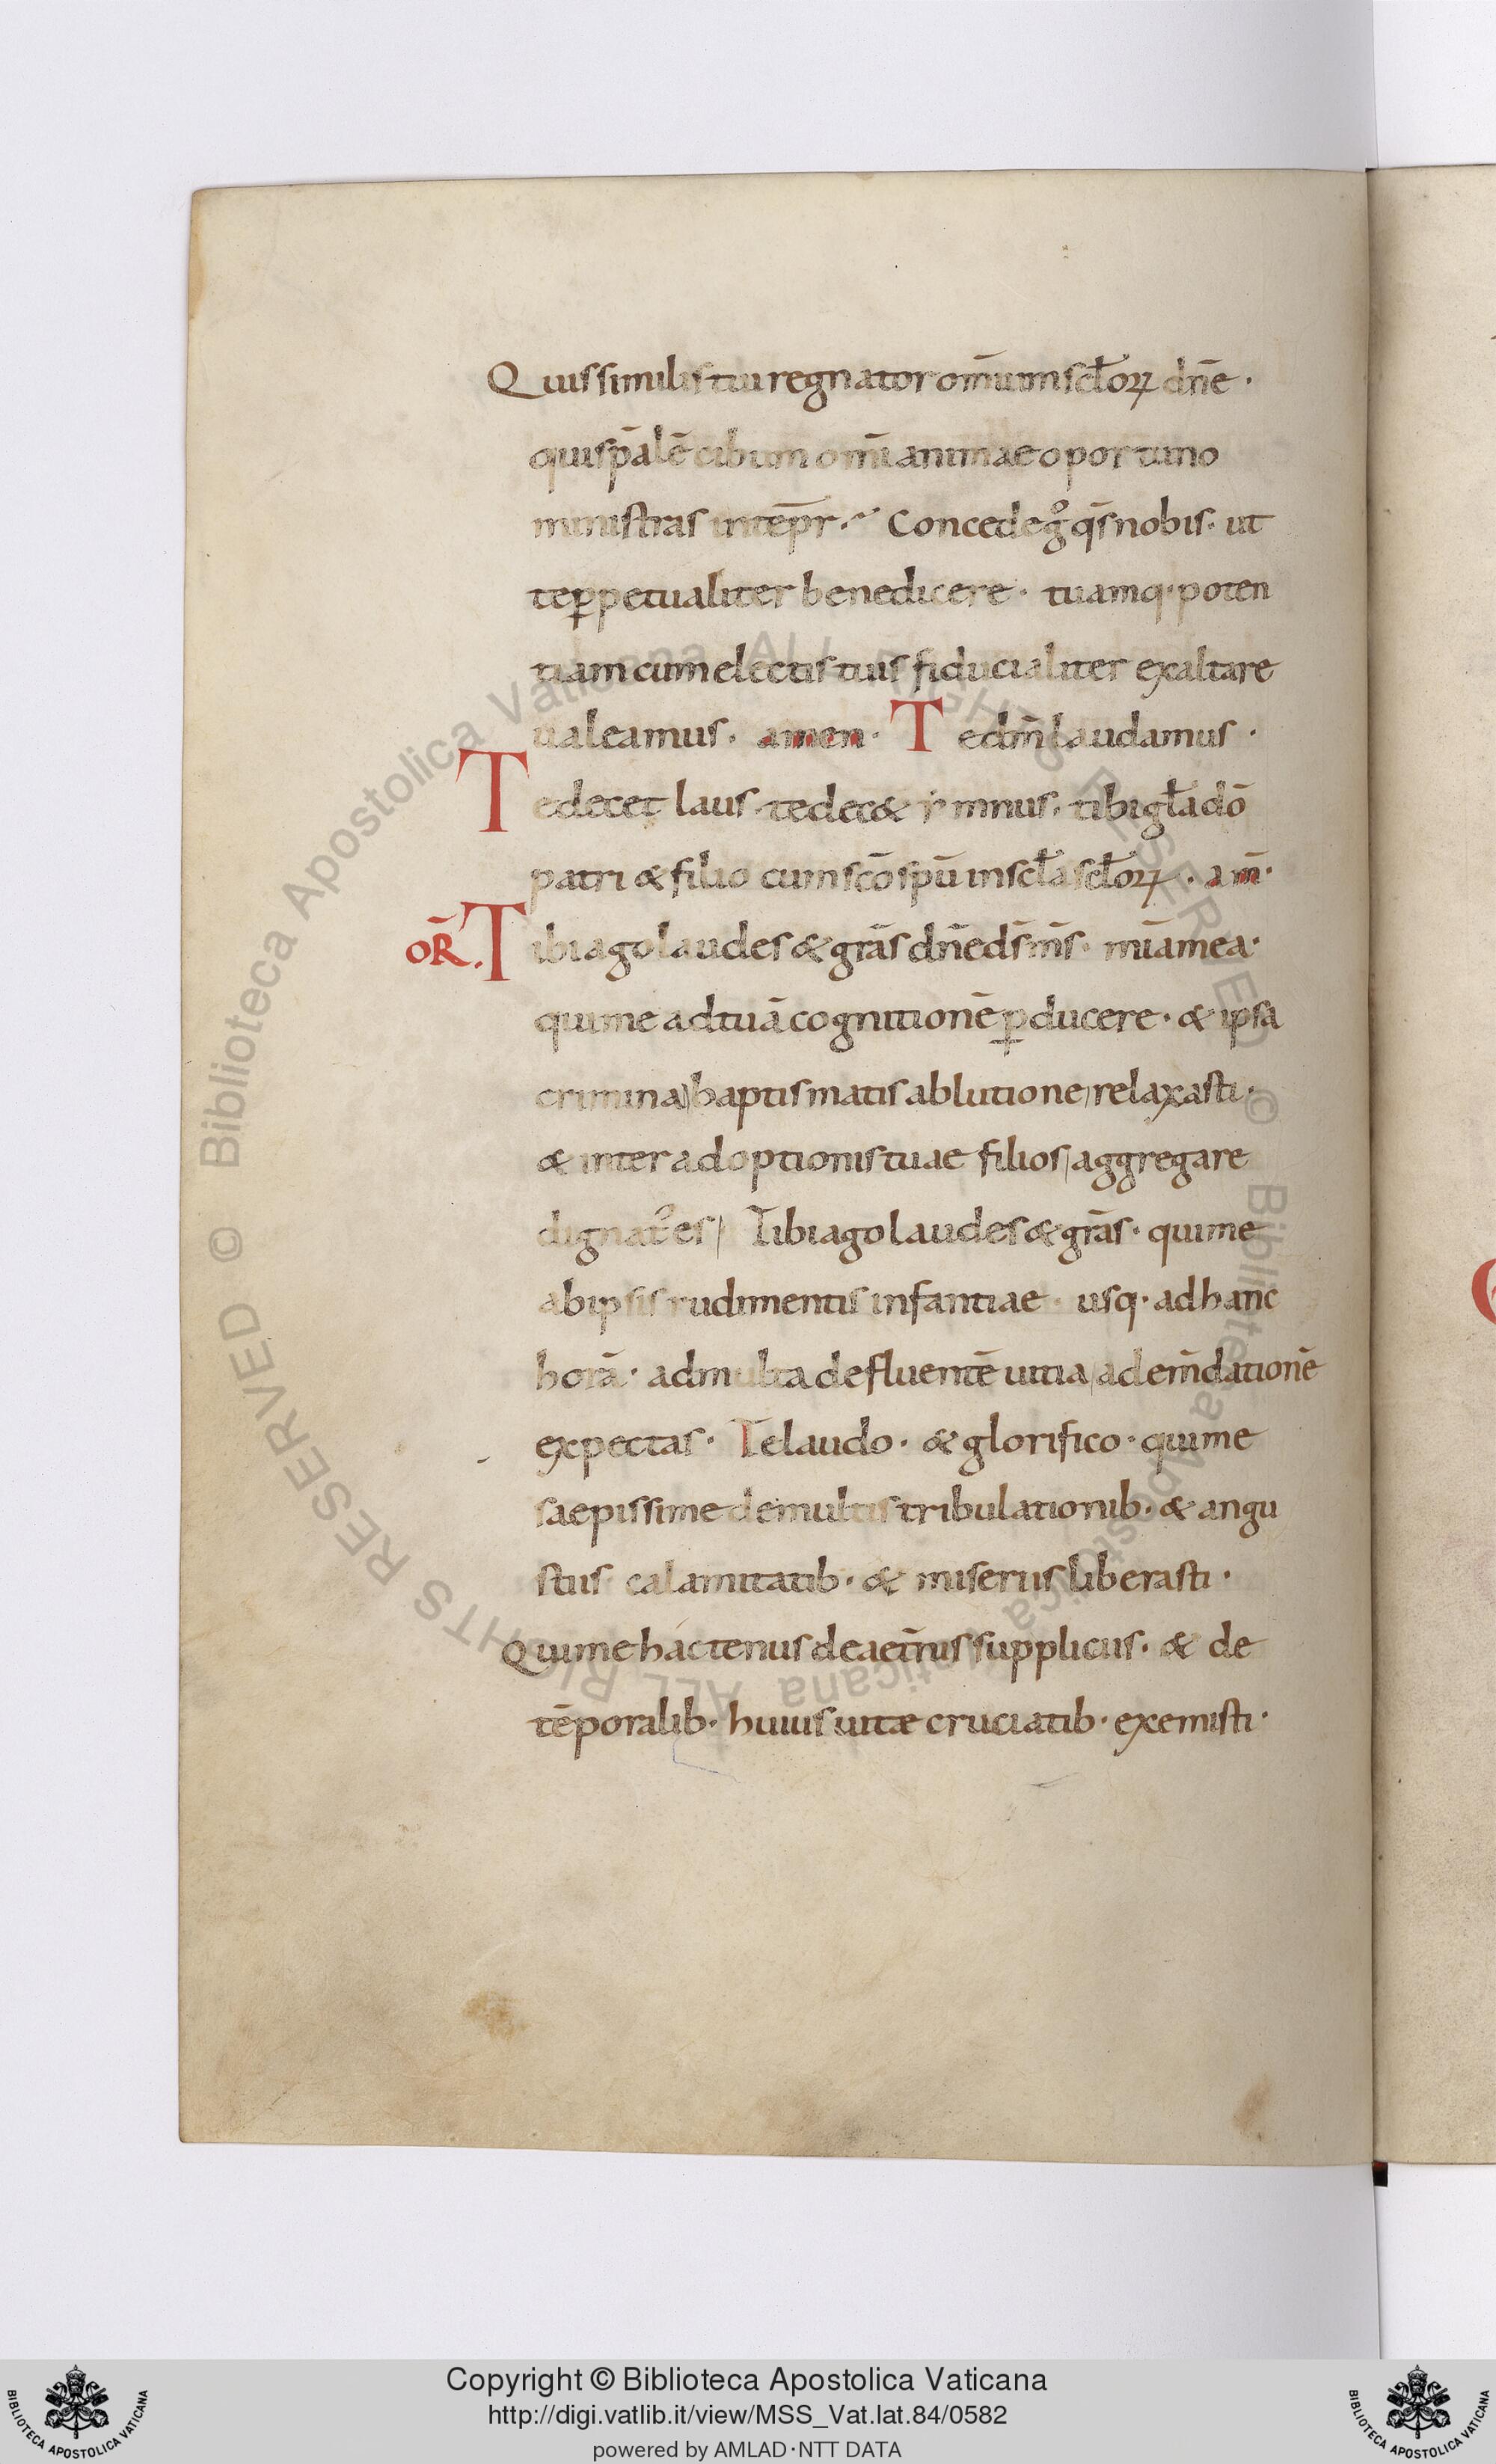 Quis similis tui regnator om̄ium sc̄lorꝝ dn̄e·
qui sp̄alē cibum om̄i animae oportuno
ministras in tēpr· Concede gͦ qs̄ nobis· ut
te ꝑpetualiter benedicere· tuamq· poten
tiam cum electis tuis fiducialiter exaltare
ualeamus· amen· Te dm̄ laudamus·
Te decet laus· te dec& ymnus· tibi gl̄a dō
patri & filio cum scō spū in scl̄a scl̄orꝝ· am̄·
OR̄. Tibi ago laudes & grās dn̄e ds̄ ms̄· mīa mea·
qui me ad tuā cognitionē ꝑducere· & ipsa
crimina baptismatis ablutione relaxasti·
& inter adoptionis tuae filios aggregare
dignat᷒ es Tibi ago laudes & grās· qui me
ab ipsis rudimentis infantiae· usq· ad hanc
horā· ad multa defluentē uitia ad em̄dationē
expectas· Te laudo· & glorifico· qui me
saepissime de multis tribulationib· & angu
stiis calamitatib· & miseriis liberasti·
Qui me hactenus de aet̄nis suppliciis· & de
tēporalib· huius uitæ cruciatib· exemisti·
Copyright © Biblioteca Apostolica Vaticana
http://digi.vatlib.it/view/MSS_Vat.lat.84/0582
powered by AMLAD·NTT DATA
BIBLIOTECA APOSTOLICA VATICANA
BIBLIOTECA APOSTOLICA VATICANA
© Biblioteca Apostolica Vaticana ALL RIGHTS RESERVED © Biblioteca Apostolica Vaticana ALL RIGHTS RESERVED